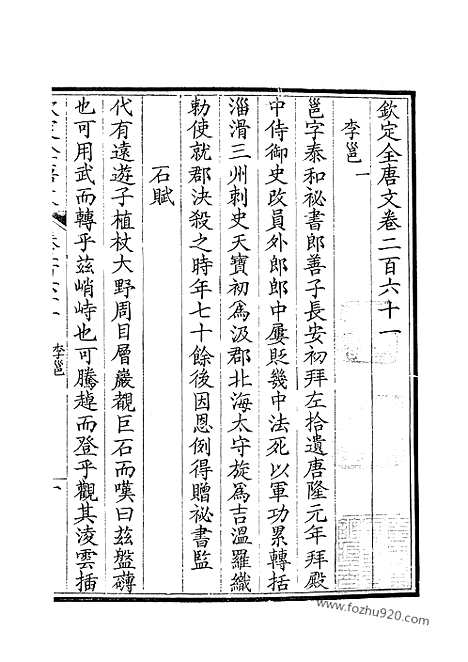 欽定全唐文卷二百六十一
李邕一
邕字泰和祕書郎善子長安初拜左拾遺唐隆元年拜殿
中侍御史改員外郎郎中屢貶幾中法死以軍功累轉括
淄滑三州刺史天寶初爲汲郡北海太守旋爲吉溫羅織
勅使就郡決殺之時年七十餘後因恩例得贈祕書監
石賦
代有遠遊子植杖大野周目層巖覩巨石而嘆曰茲盤礴
也可用武而轉乎茲峭峙也可騰趠而登乎觀其淩雲插
李邕
一
www.fozhu920.com